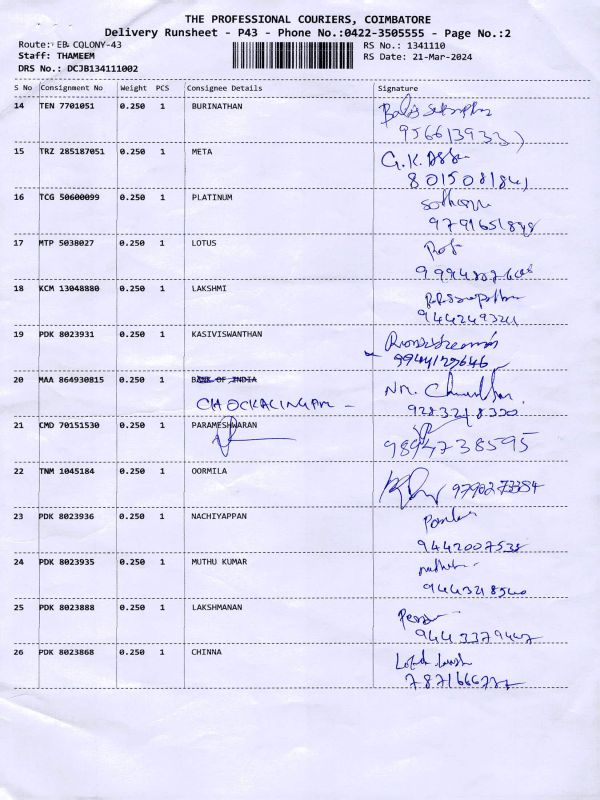 THE PROFESSIONAL COURIERS, COIMBATORE
Delivery Runsheet - P43 - Phone No.:0422-3505555 - Page No.:2
Route: EB COLONY-43 RS No.: 1341110
Staff: THAMEEM RS Date: 21-Mar-2024
DRS No.: DCJB134111002
S No Consignment No Weight PCS Consignee Details Signature
14 TEN 7701051 0.250 1 BURINATHAN
15 TRZ 285187051 0.250 1 META G.K.
8015081841
16 TCG 50600099 0.250 1 PLATINUM
9791651898
17 MTP 5038027 0.250 1 LOTUS
18 KCM 13048880 0.250 1 LAKSHMI
19 PDK 8023931 0.250 1 KASIVISWANTHAN
9994127646
20 MAA 864930815 0.250 1 BANK OF INDIA
CHOCKALINGAM -
9283218320
21 CMD 70151530 0.250 1 PARAMESHWARAN
9894738595
22 TNM 1045184 0.250 1 OORMILA
9790273384
23 PDK 8023936 0.250 1 NACHIYAPPAN
9442007538
24 PDK 8023935 0.250 1 MUTHU KUMAR
9443218540
25 PDK 8023888 0.250 1 LAKSHMANAN
9443379447
26 PDK 8023868 0.250 1 CHINNA